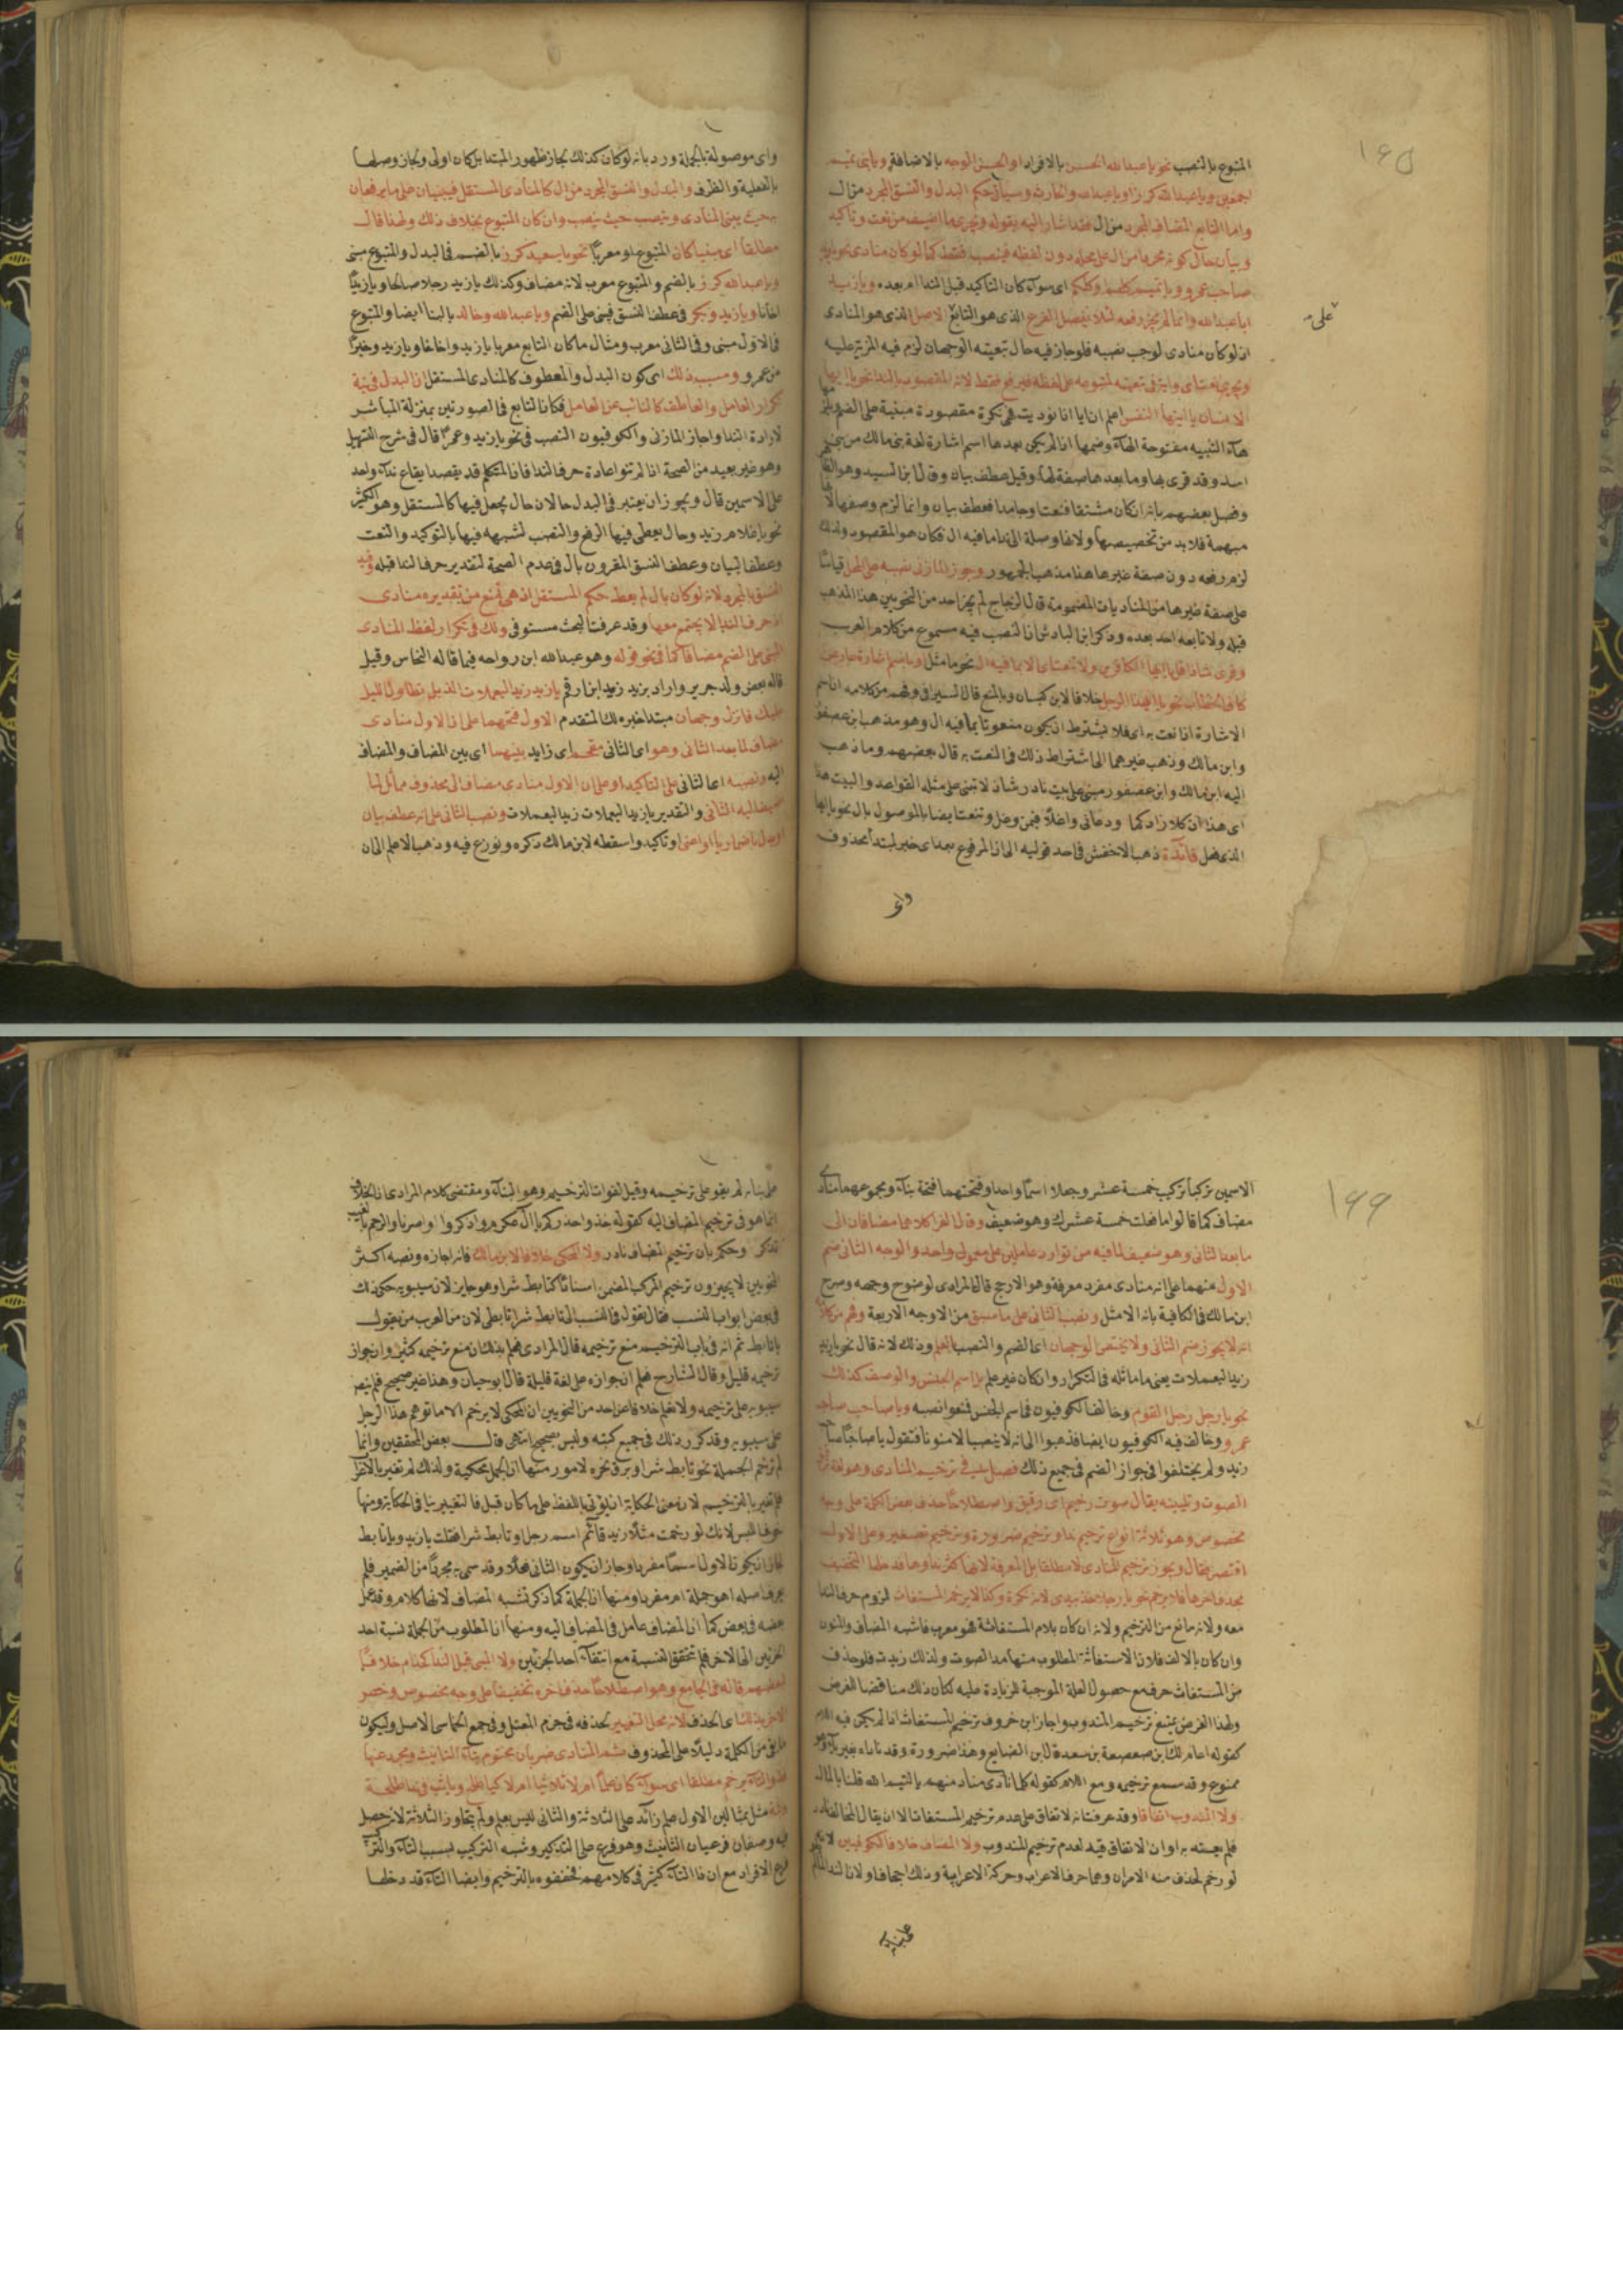 ١٦٥
المتبوع بالنصب نحو يا عبد الله الحسن بالافراد او الحسن الوجه بالاضافة ويا بنى تميم
اجمعين ويا عبد الله كرزا ويا عبد الله والحارث وسيأتى حكم البدل والنسق المجرد من ال
واما التابع المضاف المجرد من ال فقد اشار اليه بقوله ويجرى ما اضيف من نعت وتأكيد
وبيان حال كونه مجردا من ال على محله دون لفظه فينصب فقط كما لو كان منادى نحو يا زيد
صاحب عمرو ويا تميم كلهم وكلكم اى سوآء كان التاكيد قبل الندا ام بعده ويا زيد
ابا عبد الله وانما لم يجز رفعه لئلا يفضل الفرع الذى هو التابع الاصل الذى هو المنادى
على
اذ لو كان منادى لوجب نصبه فلو جاز فيه حال تبعيته الوجهان لزم فيه المزية عليه
ويجرى نعت اى واية فى تبعيته لمتبوعه على لفظه فيرفع فقط لانه المقصود بالندا نحو يا ايها
الانسان يا ايتها النفس اعلم ان ايا اذا نوديت فهى نكرة مقصودة مبنية على الضم
هآء التنبيه مفتوحة الهآء وضمها اذا لم يكن بعدها اسم اشارة لغة بنى مالك من بنى
اسد وقد قرى بها وما بعدها صفة لها وقيل عطف بيان وقال ابن السيد وهو
وفصل بعضهم بانه ان كان مشتقا فنعت او جامدا فعطف بيان وانما لزم وصفها
مبهمة فلا بد من تخصيصها ولانها وصلة الى ندا ما فيه ال فكان هو المقصود ولذلك
لزم رفعه دون صفة غيرها هذا مذهب الجمهور وجوز المازنى نصبه على المحل قياسا
على صفة غيرها من المناديات المضمومة قال الزجاج لم يجز احد من النحويين هذا المذهب
قبله ولا تابعه احد بعده وذكر ابن الباذش ان النصب فيه مسموع من كلام العرب
وقرى شاذا قل يا ايها الكافرين ولا تنعت اى الا بما فيه ال نحو ما مثل او باسم اشارة عار من
كاف الخطاب نحو يا ايهذا الرجل خلافا لابن كيسان وبالمنع قال السيرافى وفهم من كلامه ان اسم
الاشارة اذا نعت به اى فلا يشترط ان يكون منعوتا بما فيه ال وهو مذهب ابن عصفور
وابن مالك وذهب غيرهما الى اشتراط ذلك فى النعت به قال بعضهم وما ذهب
اليه ابن مالك وابن عصفور مبنى على بيت نادر شاذ لا تبنى على مثله القواعد والبيت هذا
اى هذان كلا زادكما ودعانى واغلا فيمن وغل وتنعت ايضا بالموصول بال نحو يا ايها
الذى فعل فائدة ذهب الاخفش فى احد قوليه الى ان المرفوع بعد اى خبر لمبتدأ محذوف
واى
واى موصولة بالجملة ورد بانه لو كان كذلك لجاز ظهور المبتدا بل كان اولى ولجاز وصلها
بالفعلية والظرف والبدل والنسق المجرد من ال كالمنادى المستقل فيبنيان على ما يرفعان
حيث يبنى المنادى وينصب حيث ينصب وان كان المتبوع بخلاف ذلك ولهذا قال
مطلقا اى مبنيا كان المتبوع او معربا نحو يا سعيد كرز بالضم فى البدل والمتبوع مبنى
ويا عبد الله كرز بالضم والمتبوع معرب لانه مضاف وكذلك يا زيد رجلا صالحا ويا زيد
اخانا ويا زيد وبكر فى عطف النسق فبنى على الضم ويا عبد الله وخالد بالبنا ايضا والمتبوع
فى الاول مبنى وفى الثانى معرب ومثال ما كان التابع معربا يا زيد واخانا ويا زيد وخيرا
من عمرو وسبب ذلك اى كون البدل والمعطوف كالمنادى المستقل ان البدل فى نية
تكرار العامل والعاطف كالنائب عن العامل فكان التابع فى الصورتين بمنزلة المباشر
لاداة الندا واجاز المازنى والكوفيون النصب فى نحو يا زيد وعمرا قال فى شرح التسهيل
وهو غير بعيد من الصحة اذا لم تنو اعادة حرف الندا فان المتكلم قد يقصد ايقاع ندآء واحد
على الاسمين قال ويجوز ان يعتبر فى البدل حالان حال يجعل فيها كالمستقل وهو الكثير
نحو يا غلام زيد وحال يعطى فيها الرفع والنصب لشبهه فيها بالتوكيد والنعت
وعطف البيان وعطف النسق المقرون بال فى عدم الصحة لتقدير حرف الندا قبله وقيد
النسق بالمجرد لانه لو كان بال لم يعط حكم المستقل اذ هى تمنع من تقديره منادى
اذ حرف الندا لا يجتمع معها وقد عرفت البحث مستوفى ولك فى تكرار لفظ المنادى
المبنى على الضم مضافا كما فى نحو قوله وهو عبد الله ابن رواحه فيما قاله النحاس وقيل
قاله بعض ولد جرير واراد بزيد زيد ابن ارقم يا زيد زيد اليعملات الذبل تطاول الليل
عليك فانزل وجهان مبتدا خبره لك المتقدم الاول فتحهما على ان الاول منادى
مضاف لما بعد الثانى وهو اى الثانى مقحم اى زايد بينهما اى بين المضاف والمضاف
اليه ونصبه اعنى الثانى على التاكيد او على ان الاول منادى مضاف الى محذوف مماثل لما
اضيف اليه الثانى والتقدير يا زيد اليعملات زيد اليعملات ونصب الثانى على انه عطف بيان
او بدل باضمار يا او اعنى او تاكيد واسقطه لابن مالك ذكره ونوزع فيه وذهب الاعلم الى ان
١٦٦
الاسمين تركبا تركيب خمسة عشر وجعلا اسما واحدا وفتحتهما فتحة بنآء ومجموعهما منادى
مضاف كما قالوا ما فعلت خمسة عشرك وهو ضعيف وقال الفرا كلاهما مضافان الى
ما بعد الثانى وهو ضعيف لما فيه من توارد عاملين على معمول واحد والوجه الثانى ضم
الاول منهما على انه منادى مفرد معرفة وهو الارجح قال المرادى لوضوح وجهه وصرح
ابن مالك فى الكافية بانه الامثل ونصب الثانى على ما سبق من الاوجه الاربعة وفهم من كلامه
انه لا يجوز ضم الثانى ولا يختص الوجهان اى الضم والنصب بالعلم وذلك لانه قال نحو يا زيد
زيد اليعملات يعنى ما ماثله فى التكرار وان كان غير علم بل اسم الجنس والوصف كذلك
نحو يا رجل رجل القوم وخالف الكوفيون فى اسم الجنس فمنعوا نصبه ويا صاحب صاحب
عمرو وخالف فيه الكوفيون ايضا فذهبوا الى انه لا ينصب الا منونا فتقول يا صاحبا صاحب
زيد ولم يختلفوا فى جواز الضم فى جميع ذلك فصل فى ترخيم المنادى وهو لغة
الصوت وتليينه يقال صوت رخيم اى رقيق واصطلاحا حذف بعض الكلمة على وجه
مخصوص وهو ثلاثة انواع ترخيم ندا وترخيم ضرورة وترخيم تصغير وعلى الاول
اقتصر فقال ويجوز ترخيم المنادى لا مطلقا بل المعرفة لانها كثر نداوها فدخلها التخفيف
بحذف اخرها فلا يرخم نحو يا رجلا خذ بيدى لانه نكرة وكذا لا يرخم المستغاث لزوم حرف الندا
معه ولانه مانع من الترخيم ولانه ان كان بلام المستغاثة فهو معرب فاشبه المضاف والمنون
وان كان بالالف فلان الاستغاثة المطلوب منها مد الصوت ولذلك زيدت فلو حذف
من المستغاث حرف مع حصول العلة الموجبة للزيادة عليه لكان ذلك مناقضا للغرض
ولهذا الغرض يمتنع ترخيم المندوب واجاز ابن خروف ترخيم المستغاث اذا لم يكن فيه اللام
كقوله اعام لك ابن صعصعة بن سعد قال ابن الضايع وهذا ضرورة وقد ناداه بغير يا وهو
ممنوع وقد سمع ترخيمه ومع اللام كقوله كلما نادى مناد منهم يا لتيم الله قلنا يا لمال
ولا المندوب اتفاقا وقد عرفت انه لا اتفاق على عدم ترخيم المستغاث الا ان يقال المخالف نادر
فلم يعتد به او ان الاتفاق قيد لعدم ترخيم المندوب ولا المضاف خلافا للكوفيين لانه
لو رخم لحذف منه الامران وهما حرف الاعراب وحركة الاعرابية وذلك اجحاف ولان الندا
على بنائه
على بنائه لم يقو على ترخيمه وقيل لفوات الترخيم وهو البنآء ومقتضى كلام المرادى ان الخلاف
انما هو فى ترخيم المضاف اليه كقوله خذوا حذركم يا آل عكرم واذكروا اواصرنا والرحم بالغيب
تذكر وحكم بان ترخيم المضاف نادر ولا المحكى خلافا لابن مالك فانه اجازه ونصه اكثر
النحويين لا يجيزون ترخيم المركب المضمن اسنادا كتابط شرا وهو جايز لان سيبويه حكى ذلك
فى بعض ابواب النسب فقال تقول فى النسب الى تابط شرا تابطى لان من العرب من يقول
يا تابط ثم انه فى باب الترخيم منع ترخيمه قال المرادى فعلم بذلك ان منع ترخيمه كثير وان جواز
ترخيمه قليل وقال الشارح فعلم ان جوازه على لغة قليلة قال ابو حيان وهذا غير صحيح فلم ينص
سيبويه على ترخيمه ولا نعلم خلافا عن احد من النحويين ان المحكى لا يرخم الا ما توهم هذا الرجل
على سيبويه وقد كرر ذلك فى جميع كتبه وليس بصحيح انتهى قال بعض المحققين وانما
لم ترخم الجملة نحو تابط شرا وبرق نحره لامور منها ان الجمل محكية ولذلك لم تغير بالاعراب
فلم تغير بالترخيم لان معنى الحكاية ان يؤتى باللفظ على ما كان قبل فالتغيير ينافى الحكاية ومنها
خوف اللبس لانك لو رخمت مثلا زيد قائم اسم رجل وتابط شرا فقلت يا زيد ويا تابط
لجاز ان يكون الاول اسما مفردا وجاز ان يكون الثانى فعلا وقد سمى به مجردا من الضمير فلم
يعرف اصله اهو جملة ام مفرد ومنها ان الجملة كما ذكر تشبه المضاف لانها كلام وقد عمل
بعضه فى بعض كما ان المضاف عامل فى المضاف اليه ومنها ان المطلوب من الجملة نسبة احد
الجزئين الى الاخر فلم تتحقق النسبة مع انتفآء احد الجزئين ولا المبنى قبل الندا كحذام خلافا
لبعضهم قاله فى الجامع وهو اصطلاحا حذف اخره تخفيفا على وجه مخصوص وخص
الاخر بذلك اى الحذف لانه محل التغيير كحذفه فى جزم المعتل وفى جمع الخماسى الاصل وليكون
ما بقى من الكلمة دليلا على المحذوف ثم المنادى ضربان مختوم بتآء التانيث ومجرد عنها
فذو التآء يرخم مطلقا اى سوآء كان علما ام لا ثلاثيا ام لا كيا طلح ويا ثب فى يا طلحة
وثبة مثل بمثالين الاول علم زائد على الثلاثة والثانى ليس بعلم ولم يتجاوز الثلاثة لانه حصل
فيه وصفان فرعيان التانيث وهو فرع على التذكير وشبه التركيب بسبب التآء والتركيب
فرع الافراد مع ان ذا التآء كثير فى كلامهم فخففوه بالترخيم وايضا التآء قد دخلها